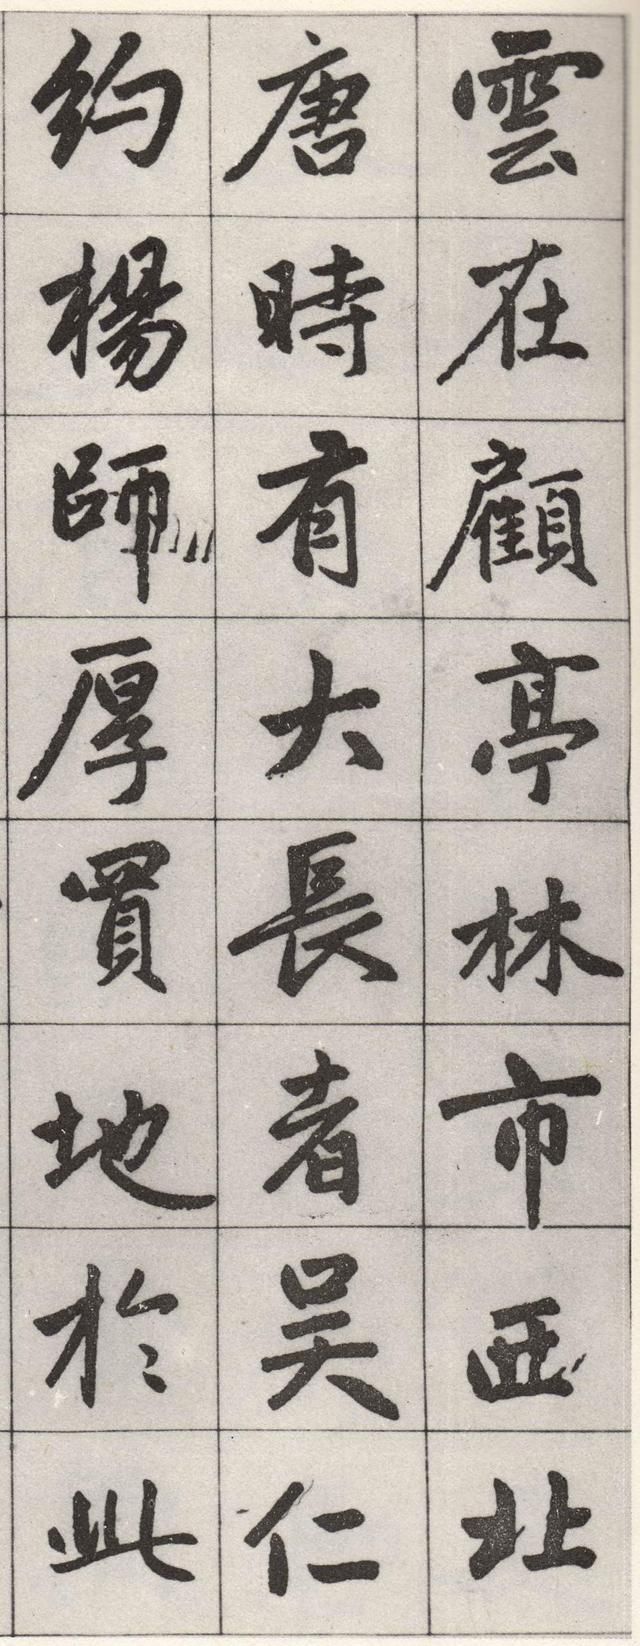 雲在顧亭林市西北
唐時有大長者吳仁
約楊師厚買地於此